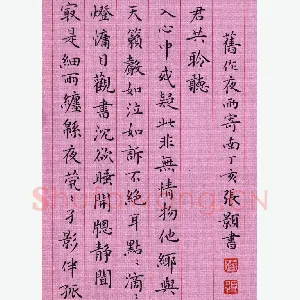 寂是細雨纏緜夜煢〻孑影伴孤
燈慵日觀書沉欲睡開牕靜聞
天籟聲如泣如訴不絕耳點〻滴〻
入心中或疑此非無情物他鄉與
君共聆聽
舊作夜雨寄南丁亥張顥書